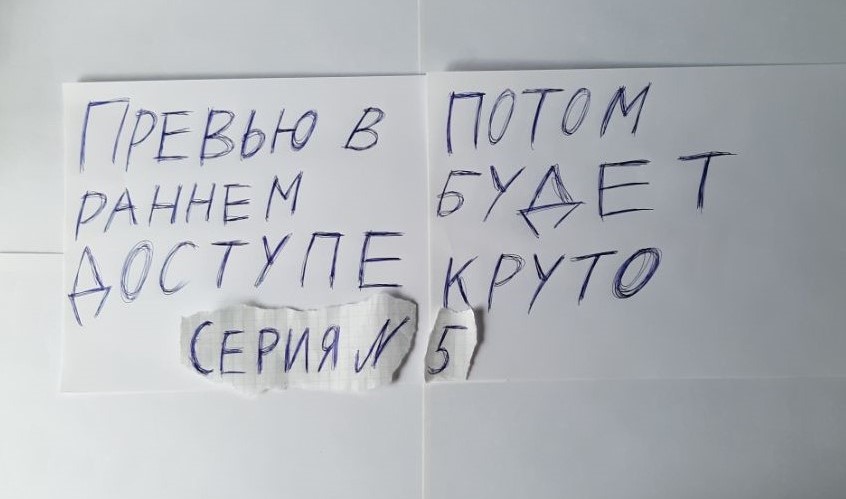 ПРЕВЬЮ В
РАННЕМ
ДОСТУПЕ
ПОТОМ
БУДЕТ
КРУТО
СЕРИЯ № 5